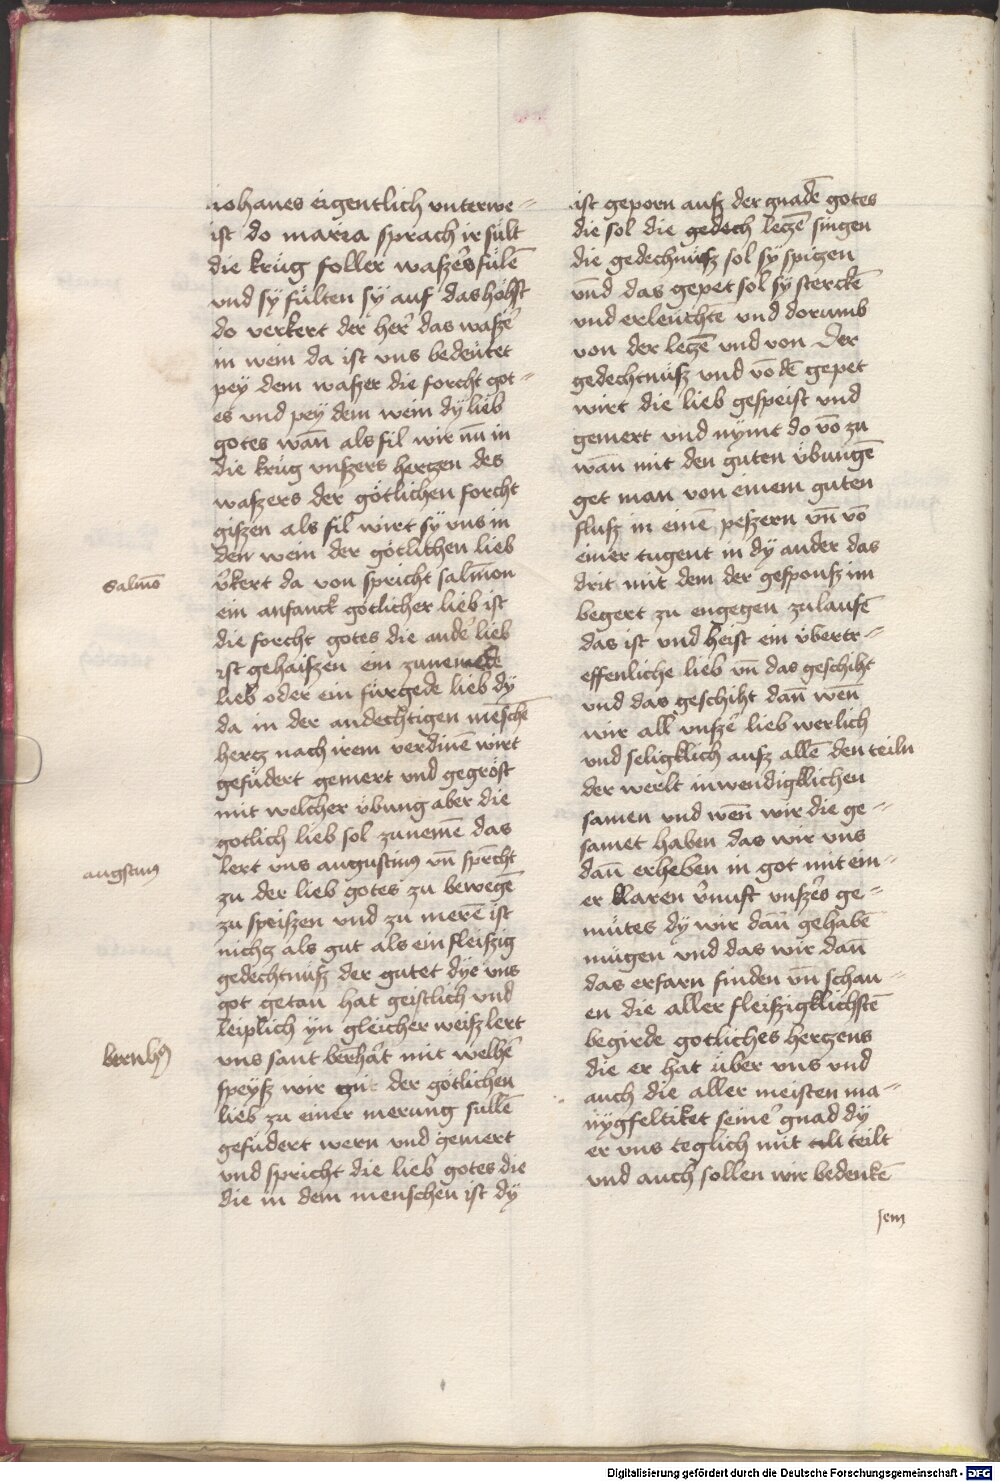 iohanes eigentlich unterwe=
ist do maria sprach ir sült
die krüg foller waszers fülē
vnd sÿ fülten sÿ auf das höhst
do verkert der her das waszer
in wein da ist vns bedeütet
pey dem waszer die forcht got=
es vnd pey dem wein dÿ lieb
gotes wān als fil wir nū in
die krüg vnszers hertzen des
waszers der götlichen forcht
giszen als fil wirt sÿ vns in
den wein der götlichen lieb
v̄kert da von spricht salmon
Salmō
ein anfanck götlicher lieb ist
die forcht gotes die ander lieb
ist gehaiszen ein zunemede
lieb oder ein fürgede lieb dÿ
da in der andechtigen mēschē
hertz nach irem verdinē wirt
gefüdert gemert vnd gegröst
mit welcher übung aber die
götlich lieb sol zunemē das
lert vns augustinus vn̄ sprcht
augstinus
zu der lieb gotes zu bewegē
zu speiszen vnd zu merē ist
nichz als gut als ein fleiszig
gedechtnüsz der gutet dÿe vns
got getan hat geistlich vnd
leiplich ÿn gleicher weisz lert
vns sant berhāt mit welhē
bernhꝰ
speysz wir der götlichen
lieb zu einer merung süllē
gefüdert wern vnd gemert
vnd spricht die lieb gotes die
die in dem menschen ist dÿ
ist geporn ausz der gnadē gotes
die sol die gedech letzē singen
die gedechnüsz sol sÿ spitzen
vnd das gepet sol sÿ sterckē
vnd erleüchtē vnd dorumb
von der letzē vnd von der
gedechtnüsz vnd vō dē gepet
wirt die lieb gespeist vnd
gemert vnd nÿmt do vō zu
wān mit den guten übungē
get man von einem guten
flusz in einē peszern vn̄ vō
einer tugent in dÿ ander das
drit mit dem der gesponsz im
begert zu engegen zulaufē
das ist vnd heist ein übertr=
effenliche lieb vn̄ das geschiht
vnd das geschiht dan̄ wen̄
wir all vnszer lieb werlich
vnd seligklich ausz allē den teiln
der werlt inwendigklichen
samen vnd wen̄ wir die ge=
samet haben das wir vns
dan̄ erheben in got mit ein=
er klaren v̄nuft vnszers ge=
mütes dÿ wir dan̄ gehabē
mügen vnd das wir dan̄
das erfarn finden vn̄ schau=
en die aller fleiszigklichstē
begirde gotliches hertzens
die er hat über vns vnd
auch die aller meisten ma=
nÿgfeltiket seiner gnad dÿ
er vns teglich mit teilt
vnd auch sollen wir bedenkē
sein
Digitalisierung gefördert durch die Deutsche Forschungsgemeinschaft - DFG